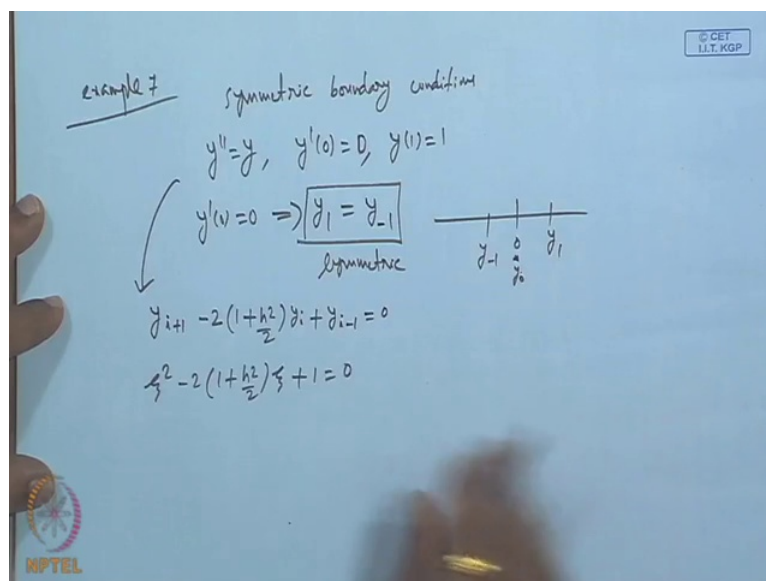 © CET
I.I.T. KGP
example 7 symmetric boundary conditions
y''=y, y'(0)=0, y(1)=1
y'(0)=0 => y₁ = y₋₁
symmetric
y₋₁ 0 y₁
y₀
yᵢ₊₁ -2(1+h²/2)yᵢ+yᵢ₋₁=0
ξ² -2(1+h²/2)ξ+1=0
NPTEL